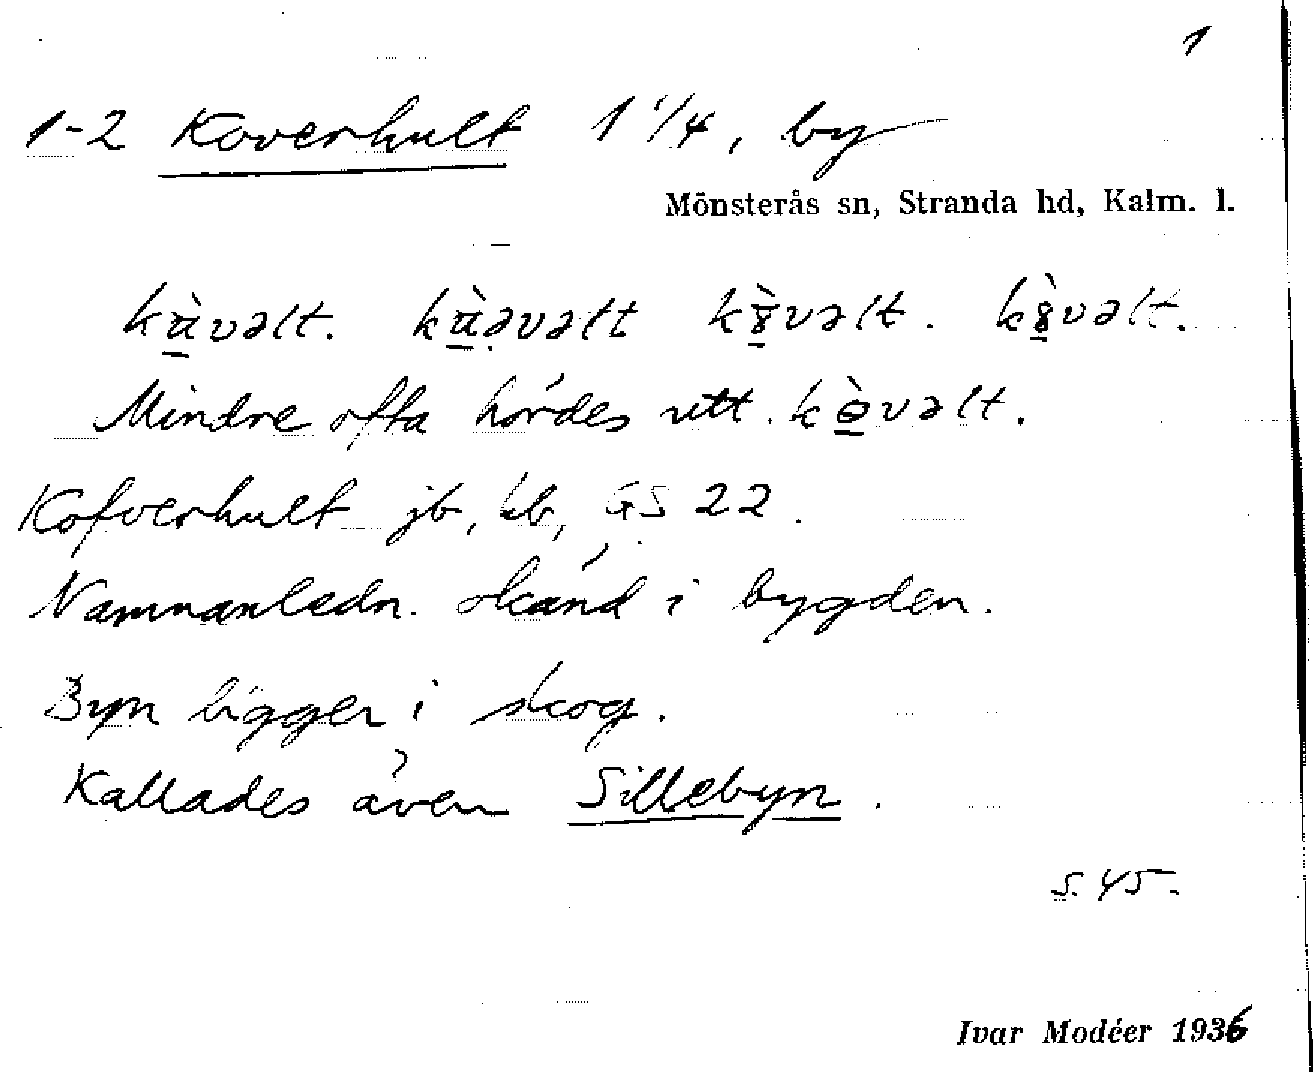 1
1-2 Koverhult 1 1/4, by
Mönsterås sn, Stranda hd, Kalm. l.
Mindre ofta hördes utt.
Kofverhult jb, kb, GS 22.
Namnanledn. okänd i bygden.
Byn ligger i skog.
Kallades även Sillebyn.
S. 45.
Ivar Modéer 1936